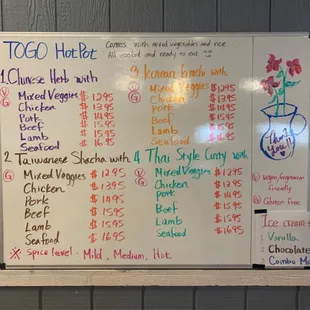 TOGO HotPot
Comes with mixed vegetables and rice
All cooked and ready to eat
1. Chinese Herb with
V G Mixed Veggies $ 1295
Chicken $ 1395
Pork $ 1495
Beef $ 1595
Lamb $ 1595
Seafood $ 1695
3. Korean Kimchi with
V G Mixed Veggies $ 1295
Chicken $ 1395
Pork $ 1495
Beef $ 1595
Lamb $ 1595
Seafood $ 1695
2. Taiwanese Shacha with
G Mixed Veggies $ 1295
Chicken $ 1395
Pork $ 1495
Beef $ 1595
Lamb $ 1595
Seafood $ 1695
※ Spice level - Mild, Medium, Hot
4. Thai Style Curry with
V G Mixed Veggies $ 1295
Chicken $ 1395
Pork $ 1495
Beef $ 1595
Lamb $ 1595
Seafood $ 1695
Thank
you!!
V Vegan, Vegetarian
friendly
G Gluten free
Ice cream
1 Vanilla
2 Chocolate
3 Combo